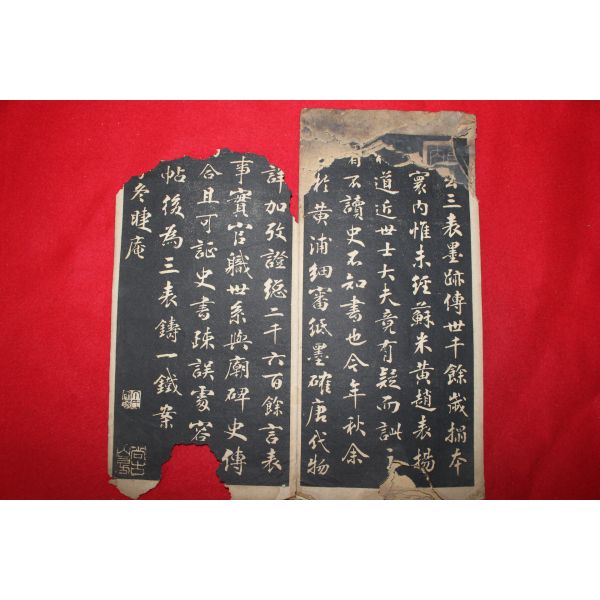 公三表墨跡傳世千餘歲搨本
寰內惟未經蘇米黃趙表揚
道近世士大夫竟有疑而訕
不讀史不知書也今年秋余
於黃浦細審紙墨確唐代物
詳加攷證總二千六百餘言表
事實官職世系與廟碑史傳
合且可証史書疎誤處容
帖後為三表鑄一鐵案
冬睫庵